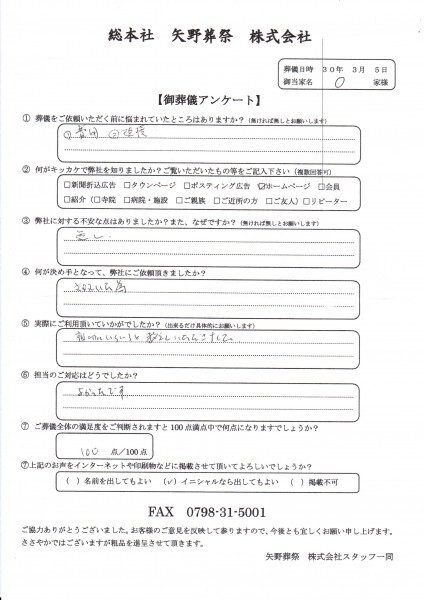 総本社 矢野葬祭 株式会社
葬儀日時 30年 3月 5日
御当家名 O 家様
【御葬儀アンケート】
① 葬儀をご依頼いただく前に悩まれていたところはありますか？（無ければ無しとお願いします）
①費用
② 何がキッカケで弊社を知りましたか？ご覧いただいたもの等をご記入下さい（複数回答可）
□新聞折込広告 □タウンページ □ポスティング広告 ☑ホームページ □会員
□紹介（□寺院 □病院・施設 □ご親族 □ご近所の方 □ご友人）□リピーター
③ 弊社に対する不安な点はありましたか？また、なぜですか？（無ければ無しとお願いします）
無し
④ 何が決め手となって、弊社にご依頼頂きましたか？
⑤ 実際にご利用頂いていかがでしたか？（出来るだけ具体的にお願いします）
⑥ 担当のご対応はどうでしたか？
よかったです
⑦ ご葬儀全体の満足度をご判断されますと100点満点中で何点になりますでしょうか？
100 点/100点
⑦上記のお声をインターネットや印刷物などに掲載させて頂いてよろしいでしょうか？
（ ）名前を出してもよい （✓）イニシャルなら出してもよい （ ）掲載不可
FAX 0798-31-5001
ご協力ありがとうございました。お客様のご意見を反映して参りますので、今後とも宜しくお願い申し上げます。
ささやかではございますが粗品を進呈させて頂きます。
矢野葬祭 株式会社スタッフ一同